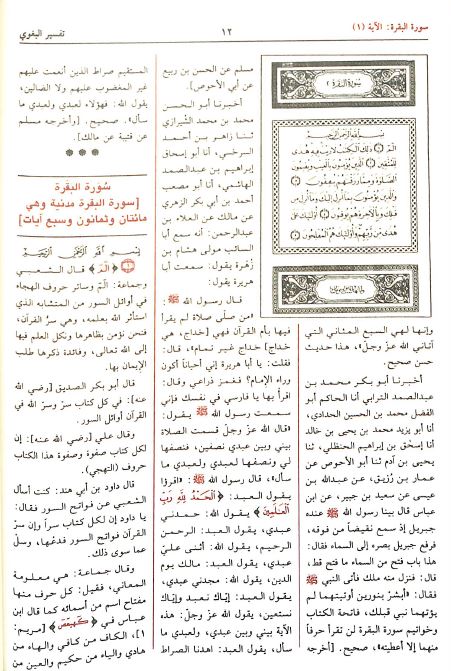 سورة البقرة: الآية (١)
١٢
تفسير البغوي
سورة البقرة ٢
بسم الله الرحمن الرحيم
الٓمٓ ١ ذلك الكتب لا ريب فيه هدى
للمتقين ٢ الذين يؤمنون بالغيب ويقيمون
الصلوة ومما رزقنهم ينفقون ٣
والذين يؤمنون بما أنزل إليك وما أنزل من
قبلك وبالآخرة هم يوقنون ٤ أولئك على
هدى من ربهم وأولئك هم المفلحون ٥
وإنها لهي السبع المثاني التي
آتاني الله عزّ وجلّ»، هذا حديث
حسن صحيح.
أخبرنا أبو بكر محمد بن
عبدالصمد الترابي أنا الحاكم أبو
الفضل محمد بن الحسين الحدادي،
أنا أبو يزيد محمد بن يحيى بن خالد
أنا إسحٰق بن إبراهيم الحنظلي، ثنا
يحيى بن آدم ثنا أبو الأحوص عن
عمار بن رُزيق، عن عبدالله بن
عيسى عن سعيد بن جبير، عن ابن
عباس قال بينا رسول الله ﷺ عنده
جبريل إذ سمع نقيضاً من فوقه،
فرفع جبريل بصره إلى السماء فقال:
هذا باب فتح من السماء ما فتح قط،
قال: فنزل منه ملك فأتى النبي ﷺ
فقال: «أبشر بنورين أوتيتهما لم
يؤتهما نبي قبلك، فاتحة الكتاب
وخواتيم سورة البقرة لن تقرأ حرفاً
منهما إلا أعطيته»، صحيح. [أخرجه
مسلم عن الحسن بن ربيع
عن أبي الأحوص].
أخبرنا أبو الحسن
محمد بن محمد الشيرازي
ثنا زاهر بن أحمد
السرخي، أنا أبو إسحاق
إبراهيم بن عبدالصمد
الهاشمي، أنا أبو مصعب
أحمد بن أبي بكر الزهري
عن مالك عن العلاء بن
عبدالرحمن: أنه سمع أبا
السائب مولى هشام بن
زهرة يقول: سمعت أبا
هريرة يقول:
قال رسول الله ﷺ:
«من صلّى صلاة لم يقرأ
فيها بأم القرآن فهي [خداج، هي
خداج] خداج غير تمام»، قال:
فقلت: يا أبا هريرة إني أحياناً أكون
وراء الإمام؟ فغمز ذراعي وقال:
اقرأ بها يا فارسي في نفسك فإني
سمعت رسول الله ﷺ يقول:
«قال الله عزّ وجلّ قسمت الصلاة
بيني وبين عبدي نصفين، فنصفها
لي ونصفها لعبدي ولعبدي ما
سأل»، قال رسول الله ﷺ: «اقرؤا
يقول العبد: ﴿الحمد لله رب
العلمين﴾ يقول الله: حمدني
عبدي، يقول العبد: الرحمن
الرحيم، يقول الله: أثنى عليّ
عبدي، يقول العبد: مالك يوم
الدين، يقول الله: مجدني عبدي،
يقول العبد: إيّاك نعبد وإيّاك
نستعين، يقول الله عزّ وجلّ: هذه
الآية بيني وبين عبدي، ولعبدي ما
سأل، يقول العبد: اهدنا الصراط
المستقيم صراط الذين أنعمت عليهم
غير المغضوب عليهم ولا الضالين،
يقول الله: فهؤلاء لعبدي ولعبدي ما
سأل». صحيح. [وأخرجه مسلم
عن قتيبة عن مالك].
***
سُورة البقرة
[سورة البقرة مدنية وهي
مائتان وثمانون وسبع آيات]
بسم الله الرحمن الرحيم
١ ﴿الم﴾ قال الشعبي
وجماعة: الم وسائر حروف الهجاء
في أوائل السور من المتشابه الذي
استأثر الله بعلمه، وهي سرّ القرآن،
فنحن نؤمن بظاهرها ونكل العلم فيها
إلى الله تعالى، وفائدة ذكرها طلب
الإيمان بها.
قال أبو بكر الصديق [رضي الله
عنه]: في كل كتاب سرّ وسرّ الله في
القرآن أوائل السور.
وقال علي [رضي الله عنه]: إن
لكل كتاب صفوة وصفوة هذا الكتاب
حروف (التهجي).
قال داود بن أبي هند: كنت أسأل
الشعبي عن فواتح السور فقال:
يا داود إن لكل كتاب سراً وإن سرّ
القرآن فواتح السور فدعْها، وسلْ
عما سوى ذلك.
وقال جماعة: هي معلومة
المعاني، فقيل: كل حرف منها
مفتاح اسم من أسمائه كما قال ابن
عباس في ﴿كهيعص﴾ [مريم:
١]، الكاف من كافي والهاء من
هادي والياء من حكيم والعين من